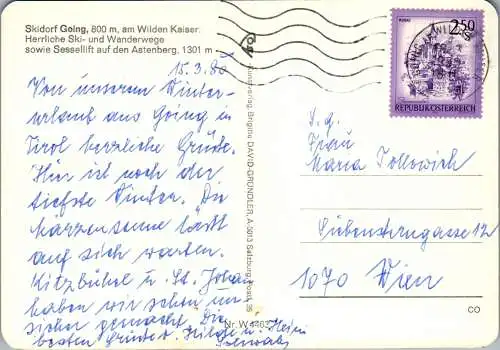 Skidorf Going, 800 m, am Wilden Kaiser.
Herrliche Ski- und Wanderwege
sowie Sessellift auf den Astenberg, 1301 m
15.3.86
Von unserem Winter-
urlaub aus Going in
Tirol herzliche Grüße.
Hier ist noch der
tiefste Winter. Die
Märzensonne läßt
auf sich warten.
Kitzbühel u. St. Johann
haben wir schon un-
sicher gemacht. Die
besten Grüße Hilde u. Heini
Kunstverlag Brigitte DAVID-GRÜNDLER, A-5013 Salzburg, Postf. 35
Nr. W 4463
2.50
REPUBLIK ÖSTERREICH
Frau
Maria
Siebensterngasse 12
1070 Wien
CO